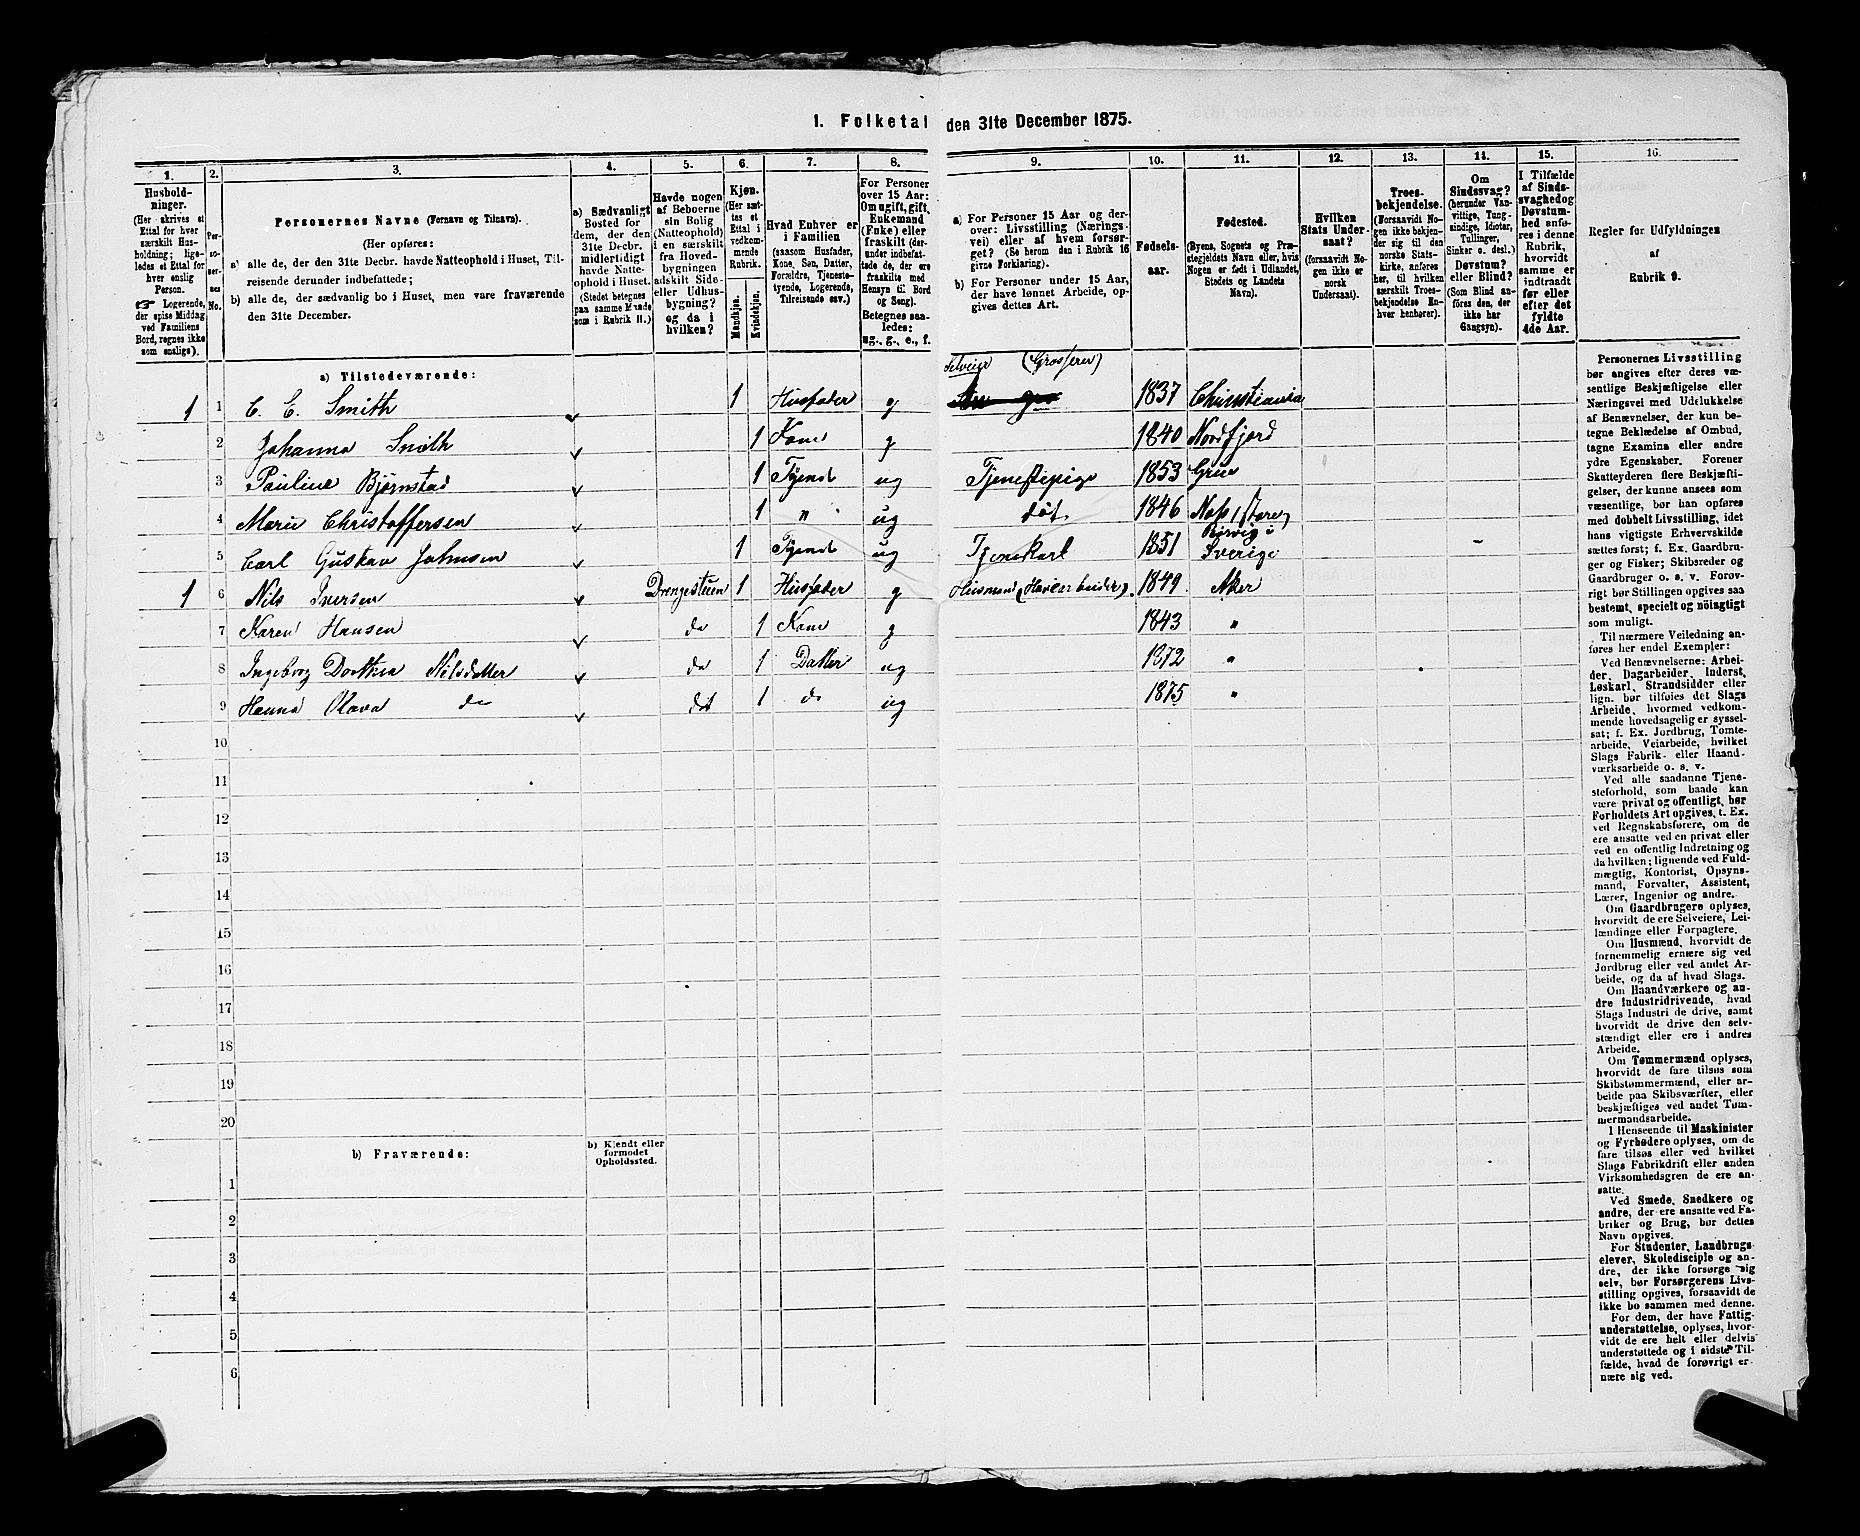 1. Folketal den 31te December 1875.
1. 2. 3. 4. 5. 6. 7. 8. 9. 10. 11. 12. 13. 14. 15. 16.
Husholdninger.
(Her skrives et
Ettal for hver
særskilt Husholdning;
ligeledes et Ettal for
hver enslig
Person.
☞ Logerende,
der spise Middag
ved Familiens
Bord, regnes ikke
som enslige).
Personernes No.
Personernes Navne (Fornavn og Tilnavn).
(Her opføres:
a) alle de, der den 31te Decbr. havde Natteophold i Huset, Tilreisende derunder indbefattede;
b) alle de, der sædvanlig bo i Huset, men vare fraværende
den 31te December.
a) Sædvanligt
Bosted for
dem, der den
31te Decbr.
midlertidigt
havde Natteophold i Huset.
(Stedet betegnes
paa samme Maade
som i Rubrik 11.)
Havde nogen
af Beboerne
sin Bolig
(Natteophold)
i en særskilt
fra Hovedbygningen
adskilt Side-
eller Udhusbygning?
og da i
hvilken?
Kjøn.
(Her sættes et
Ettal i
vedkommende
Rubrik.
Mandkjøn. Kvindekjøn.
Hvad Enhver er
i Familien
(saasom Husfader,
Kone, Søn, Datter,
Forældre, Tjenestetyende, Logerende,
Tilreisende osv.)
For Personer
over 15 Aar:
Om ugift, gift,
Enkemand
(Enke) eller
fraskilt (derunder indbefattede de, der ere
fraskilte med
Hensyn til Bord
og Seng).
Betegnes saaledes:
ug., g., e., f.
a) For Personer 15 Aar og derover: Livsstilling (Næringsvei) eller af hvem forsørget? (Se herom den i Rubrik 16
givne Forklaring).
b) For Personer under 15 Aar,
der have lønnet Arbeide, opgives dettes Art.
Fødselsaar.
Fødested.
(Byens, Sognets og Præstegjeldets Navn eller, hvis
Nogen er født i Udlandet,
Stedets og Landets
Navn).
Hvilken
Stats Undersaat?
(forsaavidt Nogen ikke er
norsk
Undersaat).
Troesbekjendelse.
(Forsaavidt Nogen ikke bekjender sig til den
norske Statskirke, anføres
her, til hvilken
særskilt Troesbekjendelse Enhver henhører).
Om
Sindssvag?
(herunder Vanvittige, Tungsindige, Idioter,
Tullinger,
Sinker o. desl.)
Døvstum?
eller Blind?
(Som Blind anføres den, der
ikke har
Gangsyn).
I Tilfælde
af Sindssvaghed og
Døvstumhed anføres i denne
Rubrik,
hvorvidt
samme er
indtraadt
før eller
efter det
fyldte
4de Aar.
Regler for Udfyldningen
af
Rubrik 9.
a) Tilstedeværende:
Selveier (Grosserer)
1 1 C. C. Smith 1 Husfader g 1837 Christiania
2 Johanna Smith 1 Kone g 1840 Nordfjord
3 Pauline Bjørnstad 1 Tyende ug Tjenestepige 1853 Grue
4 Marie Christoffersen 1 " ug dot. 1846
5 Carl Gustav Johnsen 1 Tyende ug Tjenerkarl 1851 Sverige
1 6 Nils Iversen Drengestuen 1 Husfader g Husmand (Havearbeider). 1849 Aker
7 Karen Hansen do 1 Kone g 1843 "
8 Ingeborg Dorthea Nilsdatter do 1 Datter ug 1872 "
9 Hanna Olava do dot 1 do ug 1875 "
10
11
12
13
14
15
16
17
18
19
20
b) Fraværende:
b) Kjendt eller
formodet
Opholdssted.
1
2
3
4
5
6
Personernes Livsstilling
bør angives efter deres væsentlige Beskjæftigelse eller
Næringsvei med Udelukkelse
af Benævnelser, der kun betegne Beklædelse af Ombud,
tagne Examina eller andre
ydre Egenskaber. Forener
Skatteyderen flere Beskjæftigelser, der kunne ansees som
væsentlige, bør han opføres
med dobbelt Livsstilling, idet
hans vigtigste Erhvervskilde
sættes først; f. Ex. Gaardbruger og Fisker; Skibsreder og
Gaardbruger o. s. v. Forøvrigt bør Stillingen opgives saa
bestemt, specielt og nöiagtigt
som muligt.
Til nærmere Veiledning anføres her endel Exempler:
Ved Benævnelserne: Arbeider, Dagarbeider, Inderst,
Løskarl, Strandsidder eller
lign. bør tilføies det Slags
Arbeide, hvormed vedkommende hovedsagelig er sysselsat; f. Ex. Jordbrug, Tomtearbeide, Veiarbeide, hvilket
Slags Fabrik- eller Haandværksarbeide o. s. v.
Ved alle saadanne Tjenesteforhold, som baade kan
være privat og offentligt, bør
Forholdets Art opgives, t. Ex.
ved Regnskabsførere, om de
ere ansatte ved en privat eller
ved en offentlig Indretning og
da hvilken; lignende ved Fuldmægtig, Kontorist, Opsynsmand, Forvalter, Assistent,
Lærer, Ingeniør og andre.
Om Gaardbrugere oplyses,
hvorvidt de ere Selveiere, Leilændinge eller Forpagtere.
Om Husmænd, hvorvidt de
fornemmelig ernære sig ved
Jordbrug eller ved andet Arbeide, og da af hvad Slags.
Om Haandværkere og andre Industridrivende, hvad
Slags Industri de drive, samt
hvorvidt de drive den selvstændigt eller ere i andres
Arbeide.
Om Tømmermænd oplyses,
hvorvidt de fare tilsøs som
Skibstømmermænd, eller arbeide paa Skibsværfter, eller
beskjæftiges ved andet Tømmermandsarbeide.
I Henseende til Maskinister
og Fyrbødere oplyses, om de
fare tilsøs eller ved hvilket
Slags Fabrikdrift eller anden
Virksomhedsgren de ere ansatte.
Ved Smede, Snedkere og
andre, der ere ansatte ved Fabriker og Brug, bør dettes
Navn opgives.
For Studenter, Landbrugselever, Skoledisciple og andre, der ikke forsørge sig
selv, bør Forsørgerens Livsstilling opgives, forsaavidt de
ikke bo sammen med denne.
For dem, der have Fattigunderstøttelse, oplyses, hvorvidt de ere helt eller delvis
understøttede og i sidste Tilfælde, hvad de forøvrigt ernære sig ved.